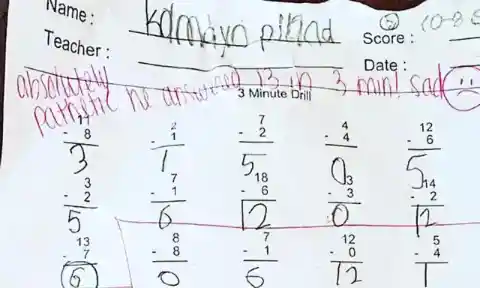 Name: Kamayn pikind
5 10-8
Teacher: Score:
Date:
absolutely pathetic he answered 13 in 3 min! sad
3 Minute Drill
17 2 7 4 12
- 8 - 1 - 2 - 4 - 6
3 1 5 0 5
3 7 18 3 14
- 2 - 1 - 6 - 3 - 2
5 6 12 0 12
13 8 7 12 5
- 7 - 8 - 1 - 0 - 4
6 0 6 12 1